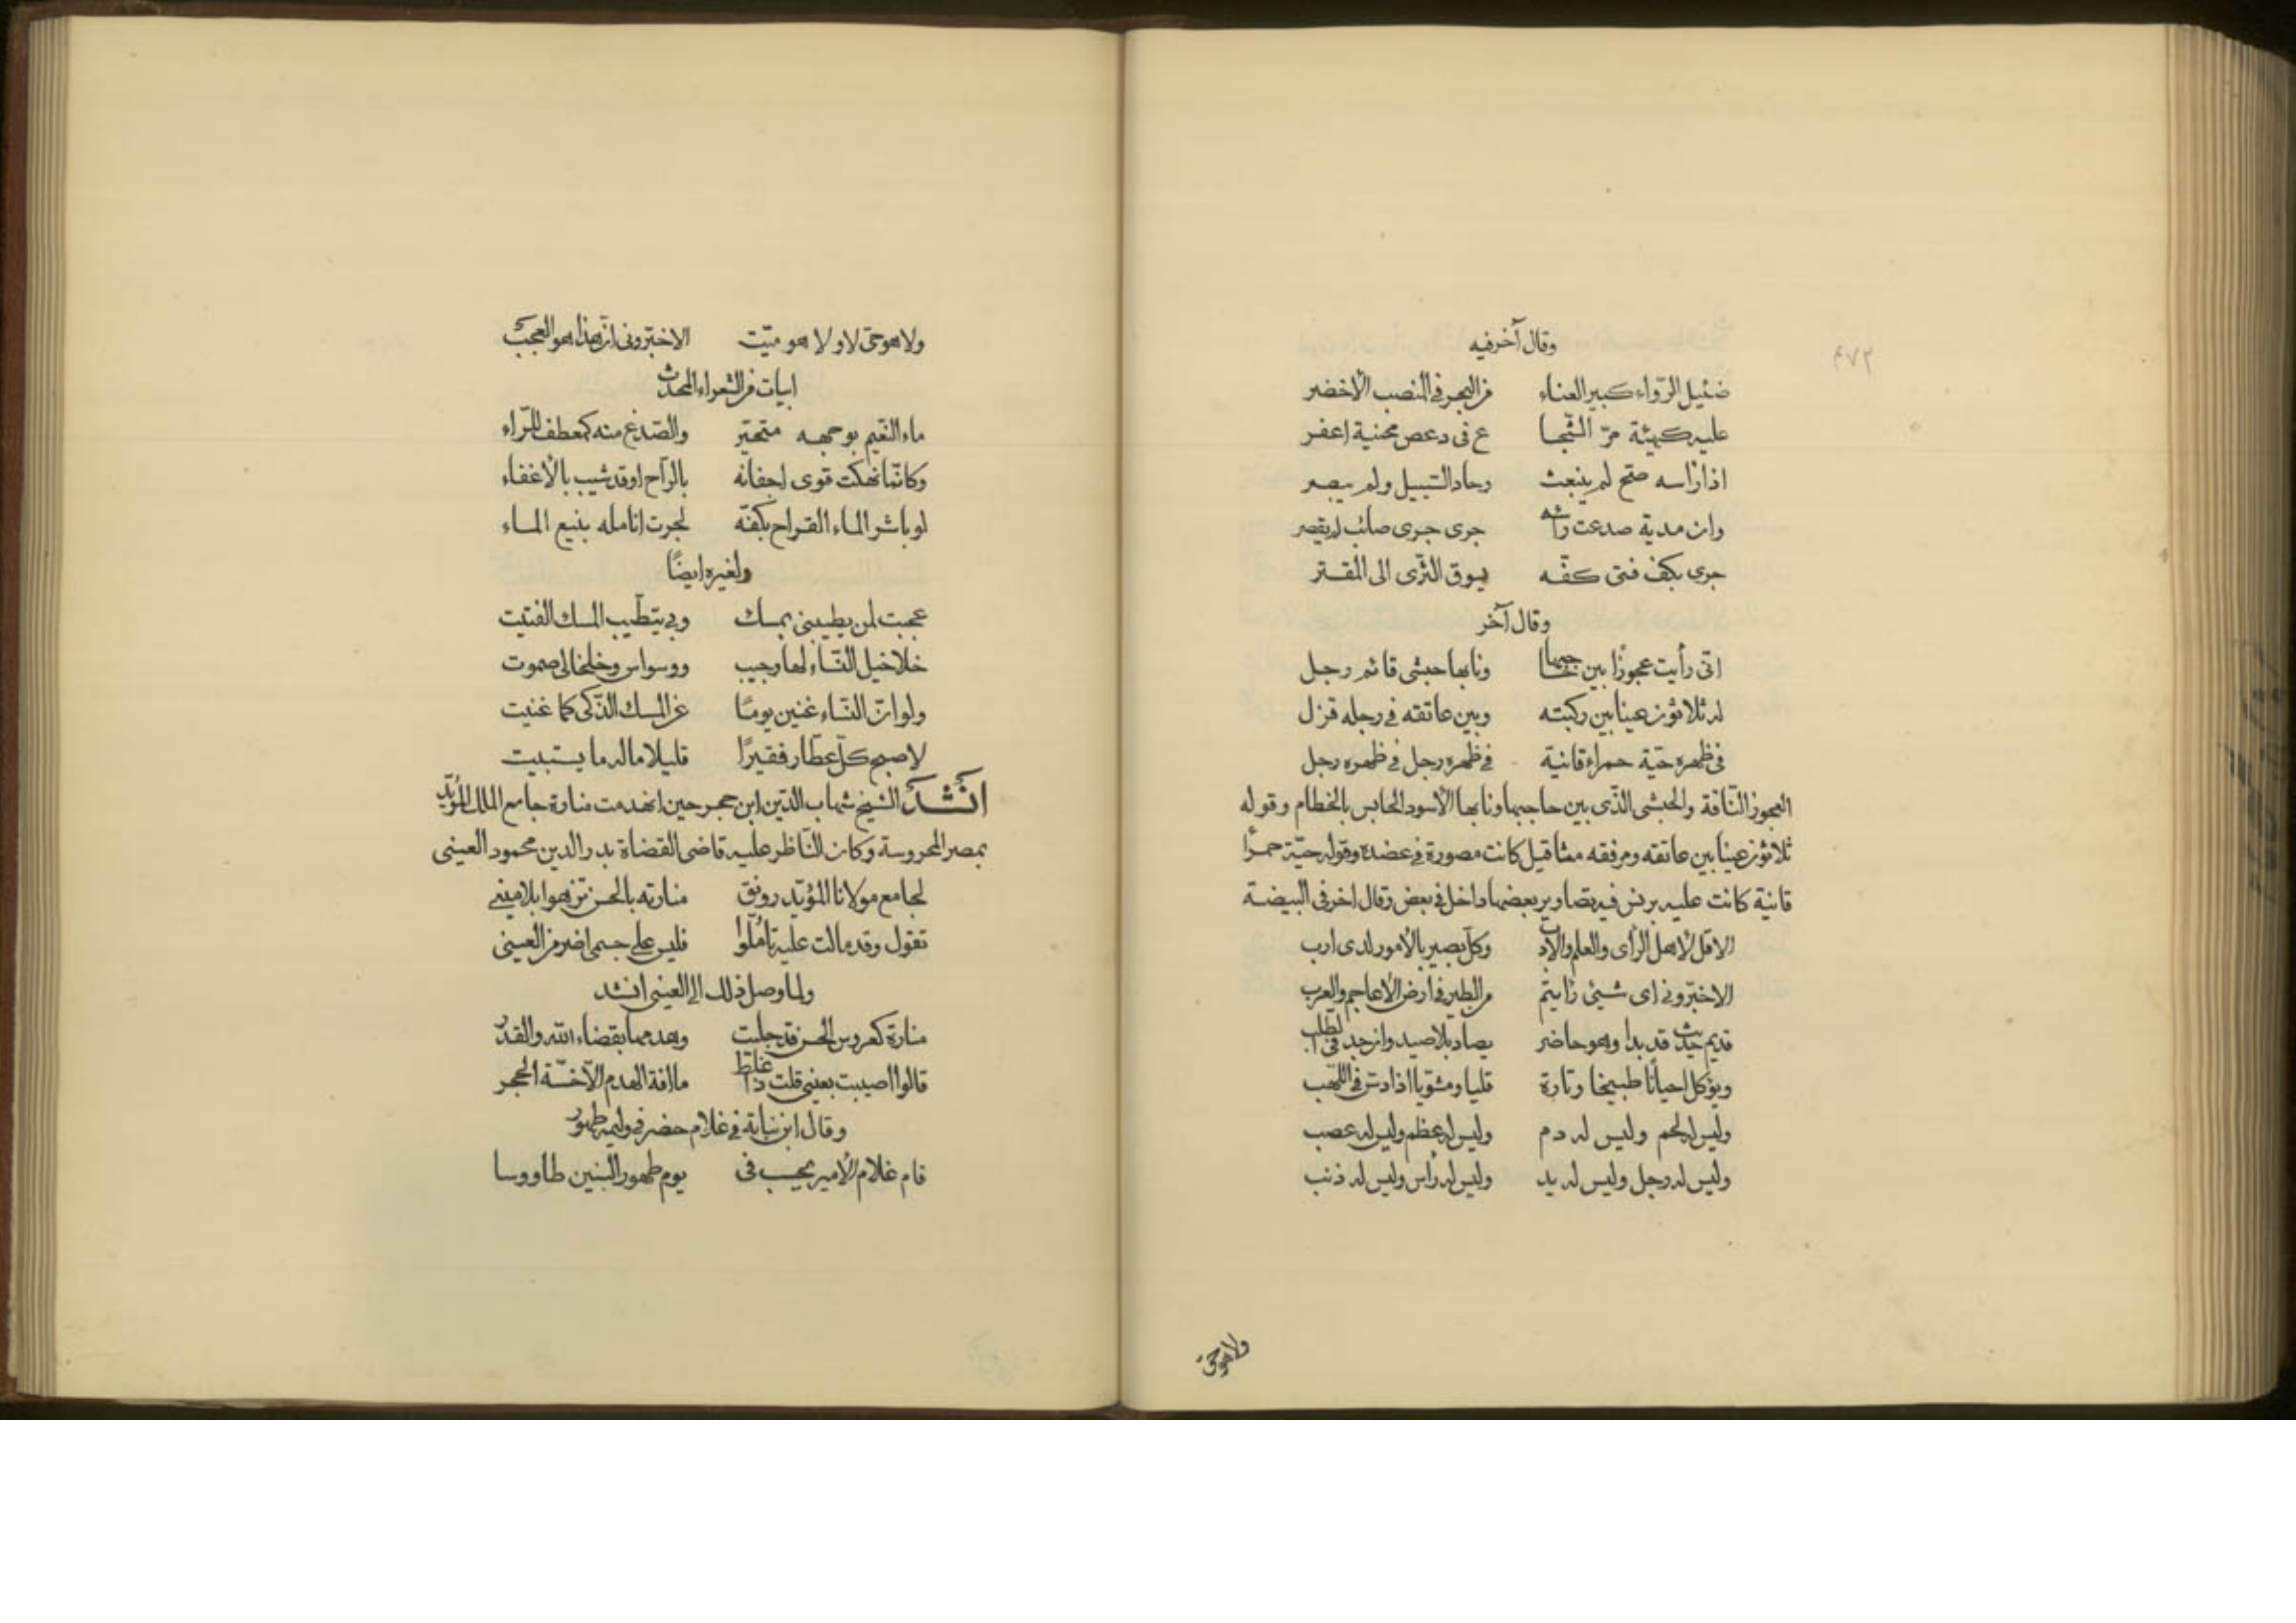 ٤٧٢
وقال آخر فيه
ضئيل الرّواء كبير العناء من البحر في المنصب الأخضر
عليه كهيئة مرّ الشّجا ع في دعص محنية اعفر
اذا رأسه صحّ لم ينبعث وحاد السّبيل ولم يبصر
وان مدية صدعت رأسه جرى جرى صائب لم يقصر
جرى بكف فتى كفّه يسوق الثّرى الى المقتر
وقال آخر
انّى رأيت عجوزًا بين حاجبها ونابها حبشى قائم رجل
له ثلاثون عينا بين ركبته وبين عاتقه في رجله قزل
في ظهره حيّة حمراء قانية في ظهره رجل في ظهره رجل
العجوز النّاقة والحبشى الّذى بين حاجبها ونابها الأسود الحابس بالخطام وقوله
ثلاثون عينا بين عاتقه ومرفقه مثاقيل كانت مصورة في عضده وقوله حيّة حمرا
قانية كانت عليه برنس فيه تصاوير بعضها داخل في بعض وقال اخر في البيضة
الا قل لأهل الرأى والعلم والأدب وكلّ بصير بالأمور لدى ارب
الا خبّرونى اى شيئ رأيتم من الطير في ارض الأعاجم والعرب
قديم حديث قد بدا وهو حاضر يصاد بلا صيد وان جد في الطلب
ويؤكل احيانًا طبيخا وتارة قليا ومشويا اذا دس في اللّهب
وليس له لحم وليس له دم وليس له عظم وليس له عصب
وليس له رجل وليس له يد وليس له رأس وليس له ذنب
ولا هو حىّ
ولا هو حىّ لا ولا هو ميّت الا خبّرونى انّ هذا هو العجب
ابيات من الشعراء المحدث
ماء النّعيم بوجهه متحيّر والصّدغ منه كعطف الرّاء
وكانّما نهكت قوى اجفانه بالرّاح او قد شيب بالأغفاء
لو باشر الماء القراح بكفّه لجرت انامله بنبع الماء
ولغيره ايضًا
عجبت لمن يطيبنى بمسك وبى يتطيّب المسك الفتيت
خلاخيل النّساء لها وجيب ووسواس وخلخالى صموت
ولو انّ النّساء غنين يومًا عن المسك الذّكى كما غنيت
لاصبح كلّ عطّار فقيرًا قليلا ماله ما يستبيت
انشد الشيخ شهاب الدّين ابن حجر حين انهدمت منارة جامع الملك المؤيّد
بمصر المحروسة وكان النّاظر عليه قاضى القضاة بدر الدين محمود العينى
لجامع مولانا المؤيّد رونق منارته بالحسن تزهو بلا مين
تقول وقد مالت عليه تأمّلوا فليس على جسمى اضر من العينى
ولما وصل ذلك الى العينى انشد
منارة كعروس الحسن قد جليت وهدمها بقضاء الله والقدر
قالوا اصيبت بعينى قلت ذا غلط ما افة الهدم الّا خسّة الحجر
وقال ابن نباتة في غلام حضر في وليمة طهور
قام غلام الأمير يحسب فى يوم طهور البنين طاووسا